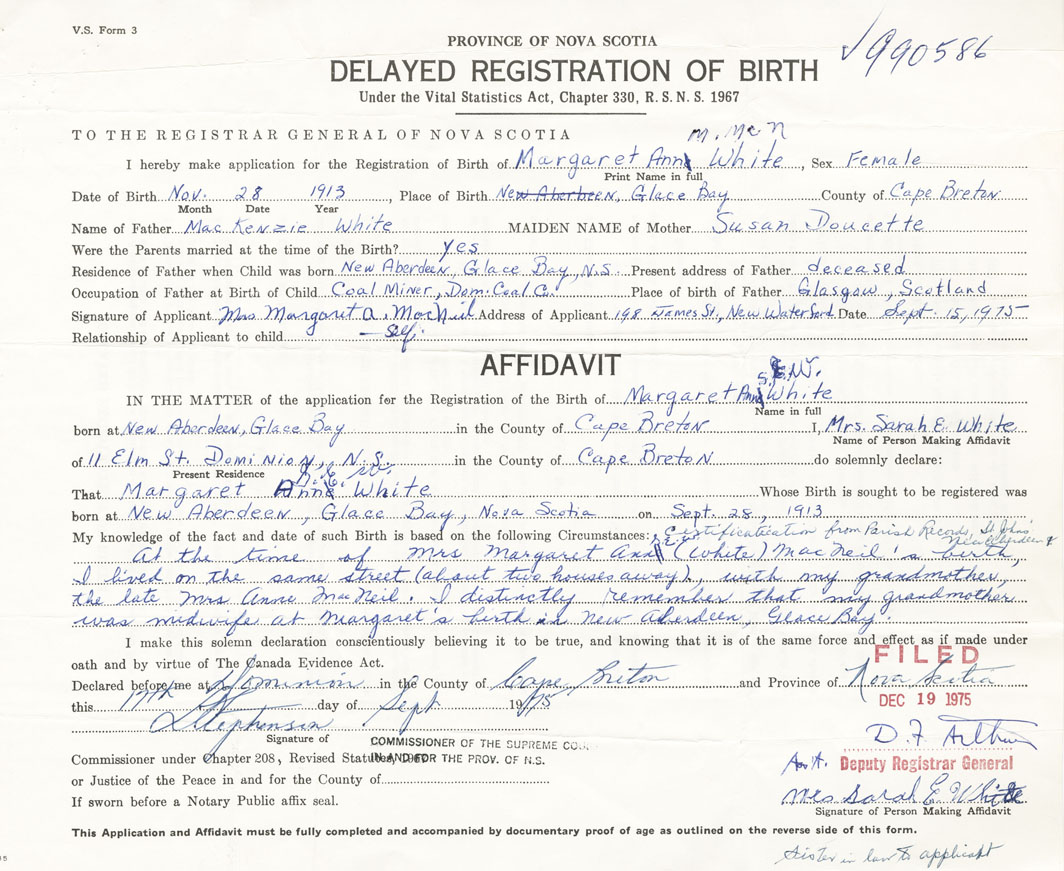 V.S. Form 3
PROVINCE OF NOVA SCOTIA
✓990586
DELAYED REGISTRATION OF BIRTH
Under the Vital Statistics Act, Chapter 330, R.S.N.S. 1967
TO THE REGISTRAR GENERAL OF NOVA SCOTIA
M. McN
I hereby make application for the Registration of Birth of Margaret Ann White, Sex Female
Print Name in full
Date of Birth Nov. 28 1913, Place of Birth New Aberdeen, Glace Bay County of Cape Breton
Month Date Year
Name of Father MacKenzie White MAIDEN NAME of Mother Susan Doucette
Were the Parents married at the time of the Birth? yes
Residence of Father when Child was born New Aberdeen, Glace Bay, N.S. Present address of Father deceased
Occupation of Father at Birth of Child Coal Miner, Dom. Coal Co. Place of birth of Father Glasgow, Scotland
Signature of Applicant Mrs Margaret A. MacNeil Address of Applicant 198 James St., New Waterford Date Sept. 15, 1975
Relationship of Applicant to child — Self.
AFFIDAVIT
S.E.W.
IN THE MATTER of the application for the Registration of the Birth of Margaret Ann White
Name in full
born at New Aberdeen, Glace Bay in the County of Cape Breton I, Mrs. Sarah E. White
Name of Person Making Affidavit
of 11 Elm St. Dominion, N.S. in the County of Cape Breton do solemnly declare:
Present Residence
That Margaret Anne White Whose Birth is sought to be registered was
born at New Aberdeen, Glace Bay, Nova Scotia on Sept. 28, 1913
My knowledge of the fact and date of such Birth is based on the following Circumstances: Certification from Parish Records, St John's New Aberdeen
At the time of Mrs Margaret Ann (White) MacNeil's birth,
I lived on the same street (about two houses away), with my grandmother,
the late Mrs Anne MacNeil. I distinctly remember that my grandmother
was midwife at Margaret's birth in New Aberdeen, Glace Bay.
I make this solemn declaration conscientiously believing it to be true, and knowing that it is of the same force and effect as if made under
oath and by virtue of The Canada Evidence Act.
FILED
Declared before me at Dominion in the County of Cape Breton and Province of Nova Scotia
DEC 19 1975
this 17th day of Sept 1975
Stephenson
Signature of
D. F. Arthur
COMMISSIONER OF THE SUPREME COU
Commissioner under Chapter 208, Revised Statutes, 1967
IN AND FOR THE PROV. OF N.S.
Deputy Registrar General
or Justice of the Peace in and for the County of
Mrs Sarah E White
If sworn before a Notary Public affix seal.
Signature of Person Making Affidavit
This Application and Affidavit must be fully completed and accompanied by documentary proof of age as outlined on the reverse side of this form.
Sister in law to applicant